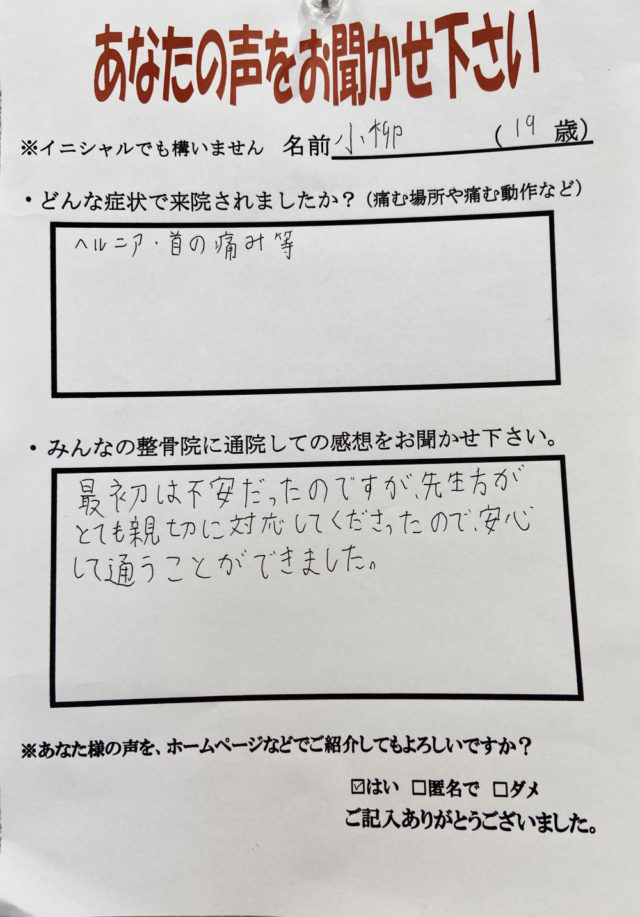 あなたの声をお聞かせ下さい
※イニシャルでも構いません 名前 小柳 (19 歳)
・どんな症状で来院されましたか？(痛む場所や痛む動作など)
ヘルニア・首の痛み等
・みんなの整骨院に通院しての感想をお聞かせ下さい。
最初は不安だったのですが、先生方が
とても親切に対応してくださったので、安心
して通うことができました。
※あなた様の声を、ホームページなどでご紹介してもよろしいですか？
☑はい □匿名で □ダメ
ご記入ありがとうございました。